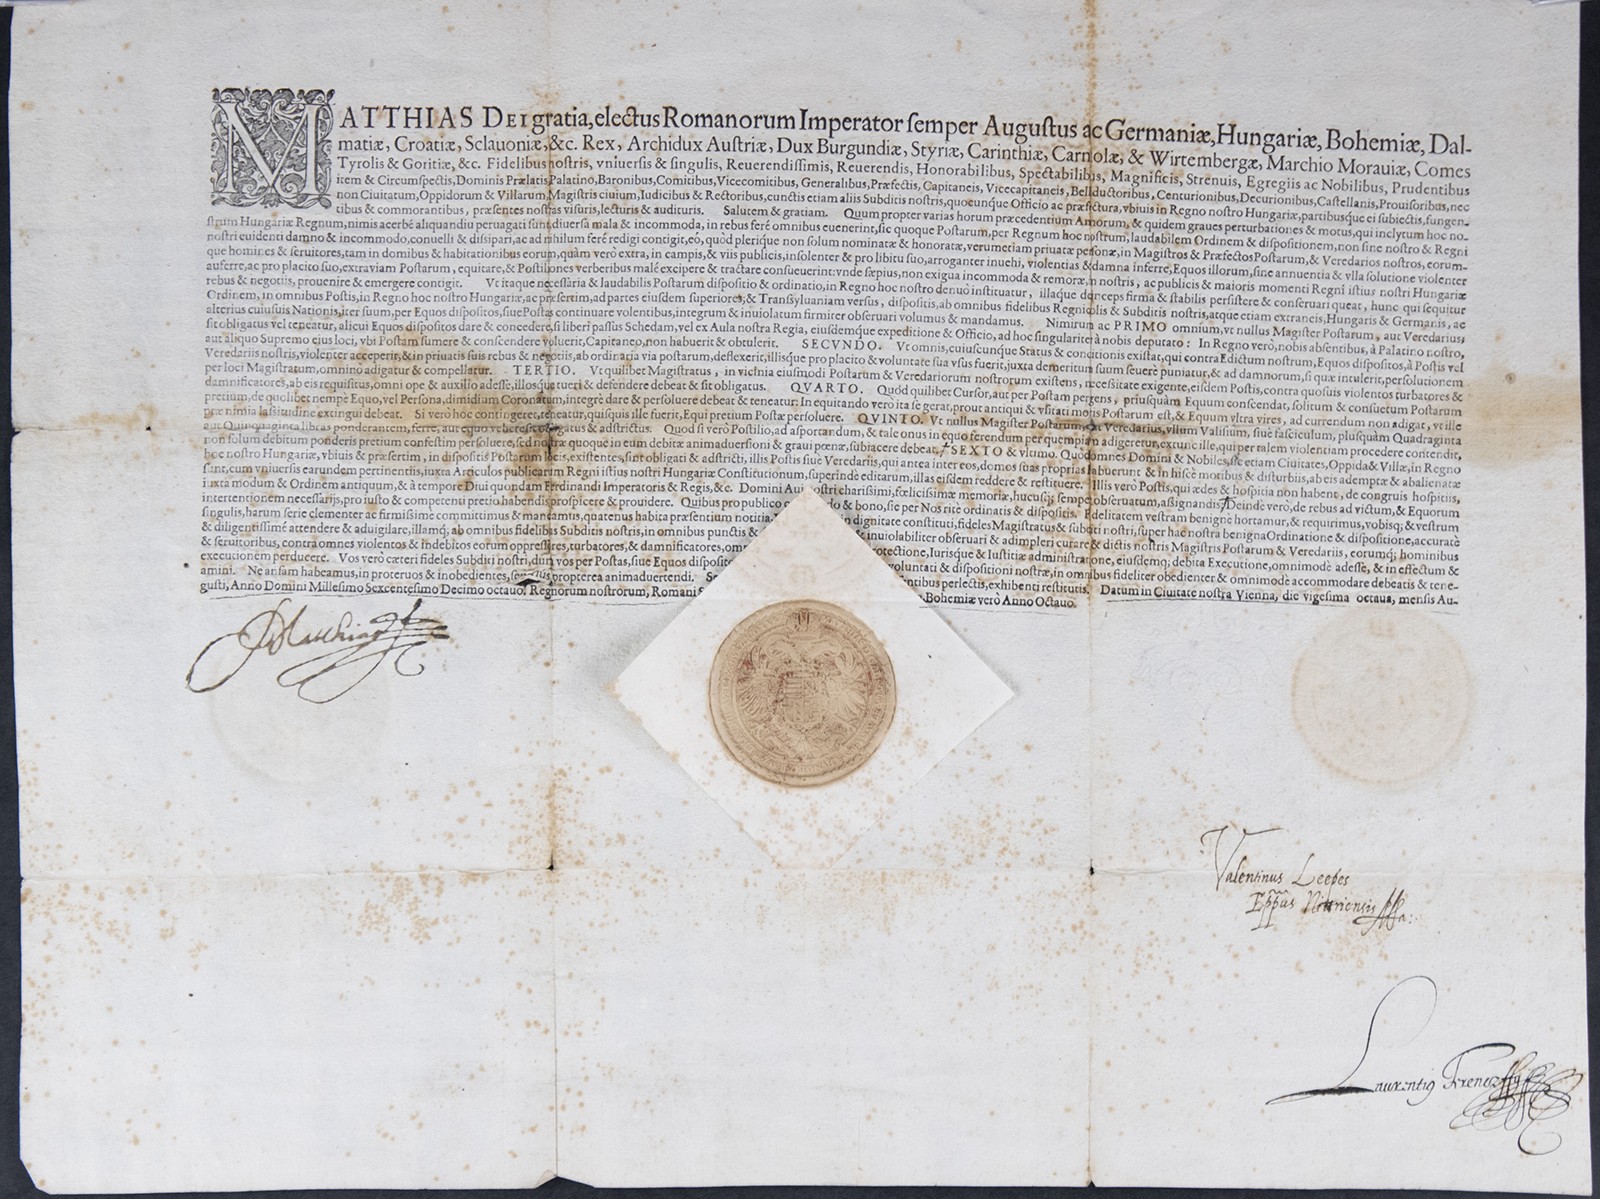 MATTHIAS DEI gratia, electus Romanorum Imperator semper Augustus ac Germaniæ, Hungariæ, Bohemiæ, Dal-
matiæ, Croatiæ, Sclauoniæ, &c. Rex, Archidux Austriæ, Dux Burgundiæ, Styriæ, Carinthiæ, Carniolæ, & Wirtembergæ, Marchio Morauiæ, Comes
Tyrolis & Goritiæ, &c. Fidelibus nostris, vniuersis & singulis, Reuerendissimis, Reuerendis, Honorabilibus, Spectabilibus, Magnificis, Strenuis, Egregiis ac Nobilibus, Prudentibus
item & Circumspectis, Dominis Prælatis, Palatino, Baronibus, Comitibus, Vicecomitibus, Generalibus, Præfectis, Capitaneis, Vicecapitaneis, Bellductoribus, Centurionibus, Decurionibus, Castellanis, Prouisoribus, nec
non Ciuitatum, Oppidorum & Villarum, Magistris ciuium, Iudicibus & Rectoribus, cunctis etiam aliis Subditis nostris, quocunque Officio ac præfectura, vbiuis in Regno nostro Hungariæ, partibusque ei subiectis, fungen-
tibus & commorantibus, præsentes nostras visuris, lecturis & audituris. Salutem & gratiam. Quum propter varias horum præcedentium Annorum, & quidem graues perturbationes & motus, qui inclytum hoc no-
strum Hungariæ Regnum, nimis acerbè aliquandiu peruagati sunt, diuersa mala & incommoda, in rebus ferè omnibus euenerint, sic quoque Postarum, per Regnum hoc nostrum, laudabilem Ordinem & dispositionem, non sine nostro & Regni
nostri euidenti damno & incommodo, conuelli & dissipari, ac ad nihilum ferè redigi contigit, eò, quòd plerique non solum nominatæ & honoratæ, verumetiam priuatæ personæ, in Magistros & Præfectos Postarum, & Veredarios nostros, eorum-
que homines & seruitores, tam in domibus & habitationibus eorum, quàm verò extra, in campis, & viis publicis, insolenter & pro libitu suo, arroganter inuehi, violentias & damna inferre, Equos illorum, sine annuentia & vlla solutione violenter
auferre, ac pro placito suo, extra viam Postarum, equitare, & Postiliones verberibus malè excipere & tractare consueuerint: vnde sæpius, non exigua incommoda & remoræ, in nostris, ac publicis & maioris momenti Regni istius nostri Hungariæ
rebus & negotiis, prouenire & emergere contigit. Vt itaque necessaria & laudabilis Postarum dispositio & ordinatio, in Regno hoc nostro denuò instituatur, illaque deinceps firma & stabilis persistere & conseruari queat, hunc qui sequitur
Ordinem, in omnibus Postis, in Regno hoc nostro Hungariæ, ac præsertim, ad partes eiusdem superiores, & Transyluaniam versus, dispositis, ab omnibus fidelibus Regnicolis & Subditis nostris, atque etiam extraneis, Hungaris & Germanis, ac
alterius cuiusuis Nationis, iter suum, per Equos dispositos, siue Postas continuare volentibus, integrum & inuiolatum firmiter obseruari volumus & mandamus. Nimirum ac PRIMO omnium, vt nullus Magister Postarum, aut Veredarius,
sit obligatus vel teneatur, alicui Equos dispositos dare & concedere, si liberi passus Schedam, vel ex Aula nostra Regia, eiusdemque expeditione & Officio, ad hoc singulariter à nobis deputato: In Regno verò, nobis absentibus, à Palatino nostro,
aut aliquo Supremo eius loci, vbi Postam sumere & conscendere voluerit, Capitaneo, non habuerit & obtulerit. SECVNDO. Vt omnis, cuiuscunque Status & conditionis existat, qui contra Edictum nostrum, Equos dispositos, à Postis vel
Veredariis nostris, violenter acceperit, & in priuatis suis rebus & negotiis, ab ordinaria via postarum, deflexerit, illisque pro placito & voluntate sua vsus fuerit, iuxta demeritum suum seuerè puniatur, & ad damnorum, si quæ intulerit, persolutionem
per loci Magistratum, omnino adigatur & compellatur. TERTIO. Vt quilibet Magistratus, in vicinia eiusmodi Postarum & Veredariorum nostrorum existens, necessitate exigente, eisdem Postis, contra quosuis violentos turbatores &
damnificatores, ab eis requisitus, omni ope & auxilio adesse, illosque tueri & defendere debeat & sit obligatus. QVARTO. Quòd quilibet Cursor, aut per Postam pergens, priusquàm Equum conscendat, solitum & consuetum Postarum
pretium, de quolibet nempè Equo, vel Persona, dimidium Coronatum, integrè dare & persoluere debeat & teneatur: In equitando verò ita se gerat, prout antiqui & vsitati moris Postarum est, & Equum vltra vires, ad currendum non adigat, vt ille
præ nimia lassitudine extingui debeat. Si verò hoc contingeret, teneatur, quisquis ille fuerit, Equi pretium Postæ persoluere. QVINTO. Vt nullus Magister Postarum, aut Veredarius, vllum Valisium, siuè fasciculum, plusquàm Quadraginta
aut Quinquaginta libras ponderantem, ferre, aut equo vehere sit obligatus & adstrictus. Quod si verò Postilio, ad asportandum, & tale onus in equo ferendum per quempiam adigeretur, extunc ille, qui per talem violentiam procedere contendit,
non solum debitum ponderis pretium confestim persoluere, sed nostræ quoque in eum debitæ animaduersioni & graui pœnæ, subiacere debeat. SEXTO & vltimo. Quòd omnes Domini & Nobiles, sic etiam Ciuitates, Oppida & Villæ, in Regno
hoc nostro Hungariæ, vbiuis & præsertim, in dispositis Postarum locis, existentes, sint obligati & adstricti, illis Postis siuè Veredariis, qui antea inter eos, domos suas proprias habuerunt & in hiscè motibus & disturbiis, ab eis ademptæ & abalienatæ
sunt, cum vniuersis earundem pertinentiis, iuxta Articulos publicarum Regni istius nostri Hungariæ Constitutionum, superindè editarum, illas eisdem reddere & restituere. Illis verò Postis, qui ædes & hospitia non habent, de congruis hospitiis,
iuxta modum & Ordinem antiquum, & à tempore Diui quondam Ferdinandi Imperatoris & Regis, &c. Domini Aui nostri charissimi, fœlicissimæ memoriæ, hucusq; semper obseruatum, assignandis, Deindè verò, de rebus ad victum, & Equorum
intertentionem necessarijs, pro iusto & competenti pretio habendis, prospicere & prouidere. Quibus pro publico do & bono, sic per Nos ritè ordinatis & dispositis. Fidelitatem vestram benignè hortamur, & requirimus, vobisq; & vestrum
singulis, harum serie clementer ac firmissimè committimus & mandamus, quatenus habita præsentium notitia, in dignitate constituti, fideles Magistratus & subditi nostri, super hac nostra benigna Ordinatione & dispositione, accuratè
& diligentissimè attendere & aduigilare, illamq; ab omnibus fidelibus Subditis nostris, in omnibus punctis & & inuiolabiliter obseruari & adimpleri curare & dictis nostris Magistris Postarum & Veredariis, eorumq; hominibus
& seruitoribus, contra omnes violentos & indebitos eorum oppressores, turbatores, & damnificatores, om rotectione, Iurisque & Iustitiæ administratione, eiusdemq; debita Executione, omnimodè adesse, & in effectum &
executionem perducere. Vos verò cæteri fideles Subditi nostri, dum vos per Postas, siue Equos disposi voluntati & dispositioni nostræ, in omnibus fideliter obedienter & omnimodè accommodare debeatis & tene-
amini. Ne ansam habeamus, in proteruos & inobedientes, propterea animaduertendi. S entibus perlectis, exhibenti restitutis. Datum in Ciuitate nostra Vienna, die vigesima octaua, mensis Au-
gusti, Anno Domini Millesimo Sexcentesimo Decimo octauo. Regnorum nostrorum, Romani S Bohemiæ verò Anno Octauo.
Matthias
Valentinus Leepes
Eppus Nitriensis
Laurentius Ferenczffy